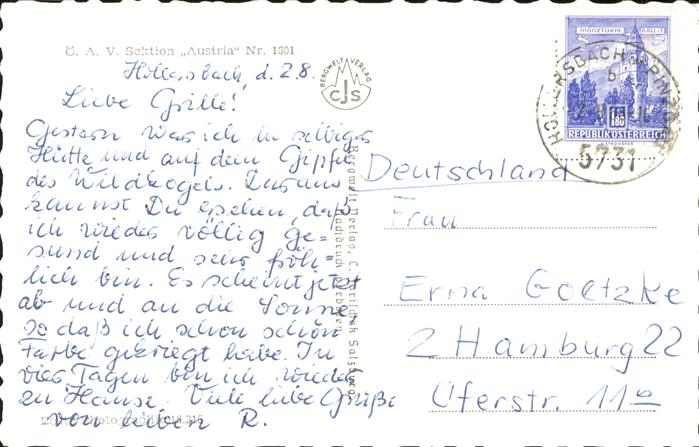 Ö. A. V. Sektion „Austria“ Nr. 1601
Hollersbach, d. 2.8.
Liebe Grille!
Gestern war ich in selbiger
Hütte und auf dem Gipfel
des Wildkogels. Daraus
kannst Du ersehen, daß
ich wieder völlig ge-
sund und sehr fröh-
lich bin. Es scheint jetzt
ab und an die Sonne
so daß ich schon schön
Farbe gekriegt habe. In
vier Tagen bin ich wieder
zu Hause. Viele liebe Grüße
von Deiner R.
BERGWELT VERLAG
CJS
Bergwelt Verlag, C. Jurischek Salzburg
MÜNZTURM HALL i.T.
1.80
REPUBLIK ÖSTERREICH
HOLLERSBACH im PINZGAU
b
5731
Deutschland
Frau
Erna Goetzke
2 Hamburg 22
Uferstr. 11b